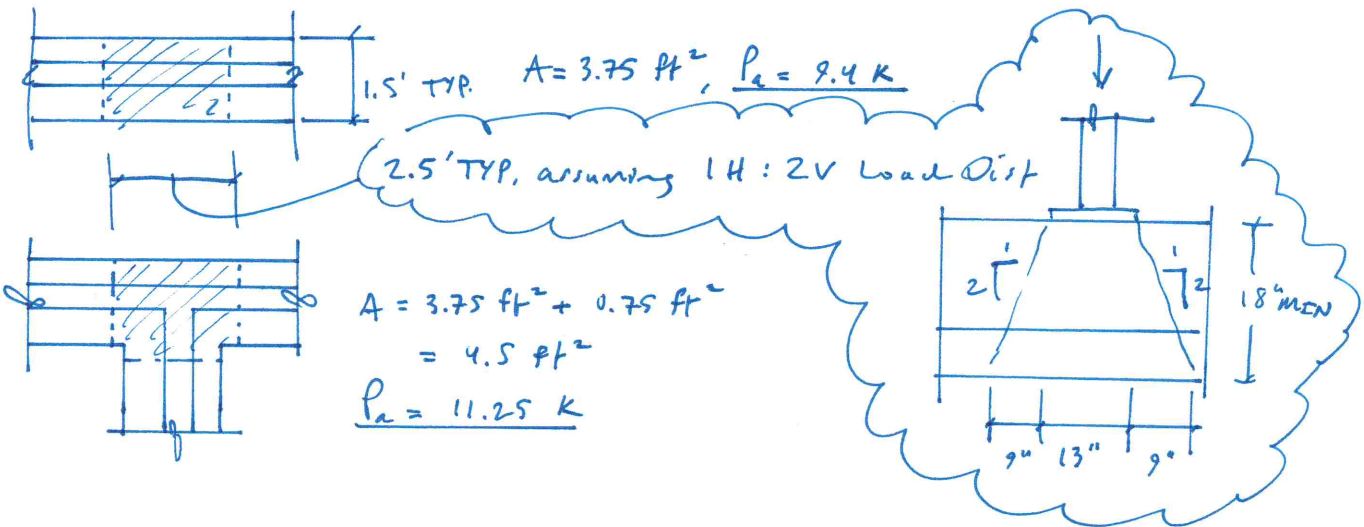 1.5' TYP.
A = 3.75 ft², Pa = 9.4 K
2.5' TYP, assuming 1H : 2V Load Dist
A = 3.75 ft² + 0.75 ft²
= 4.5 ft²
Pa = 11.25 K
1
2
1
2
18" MIN
9" 13" 9"